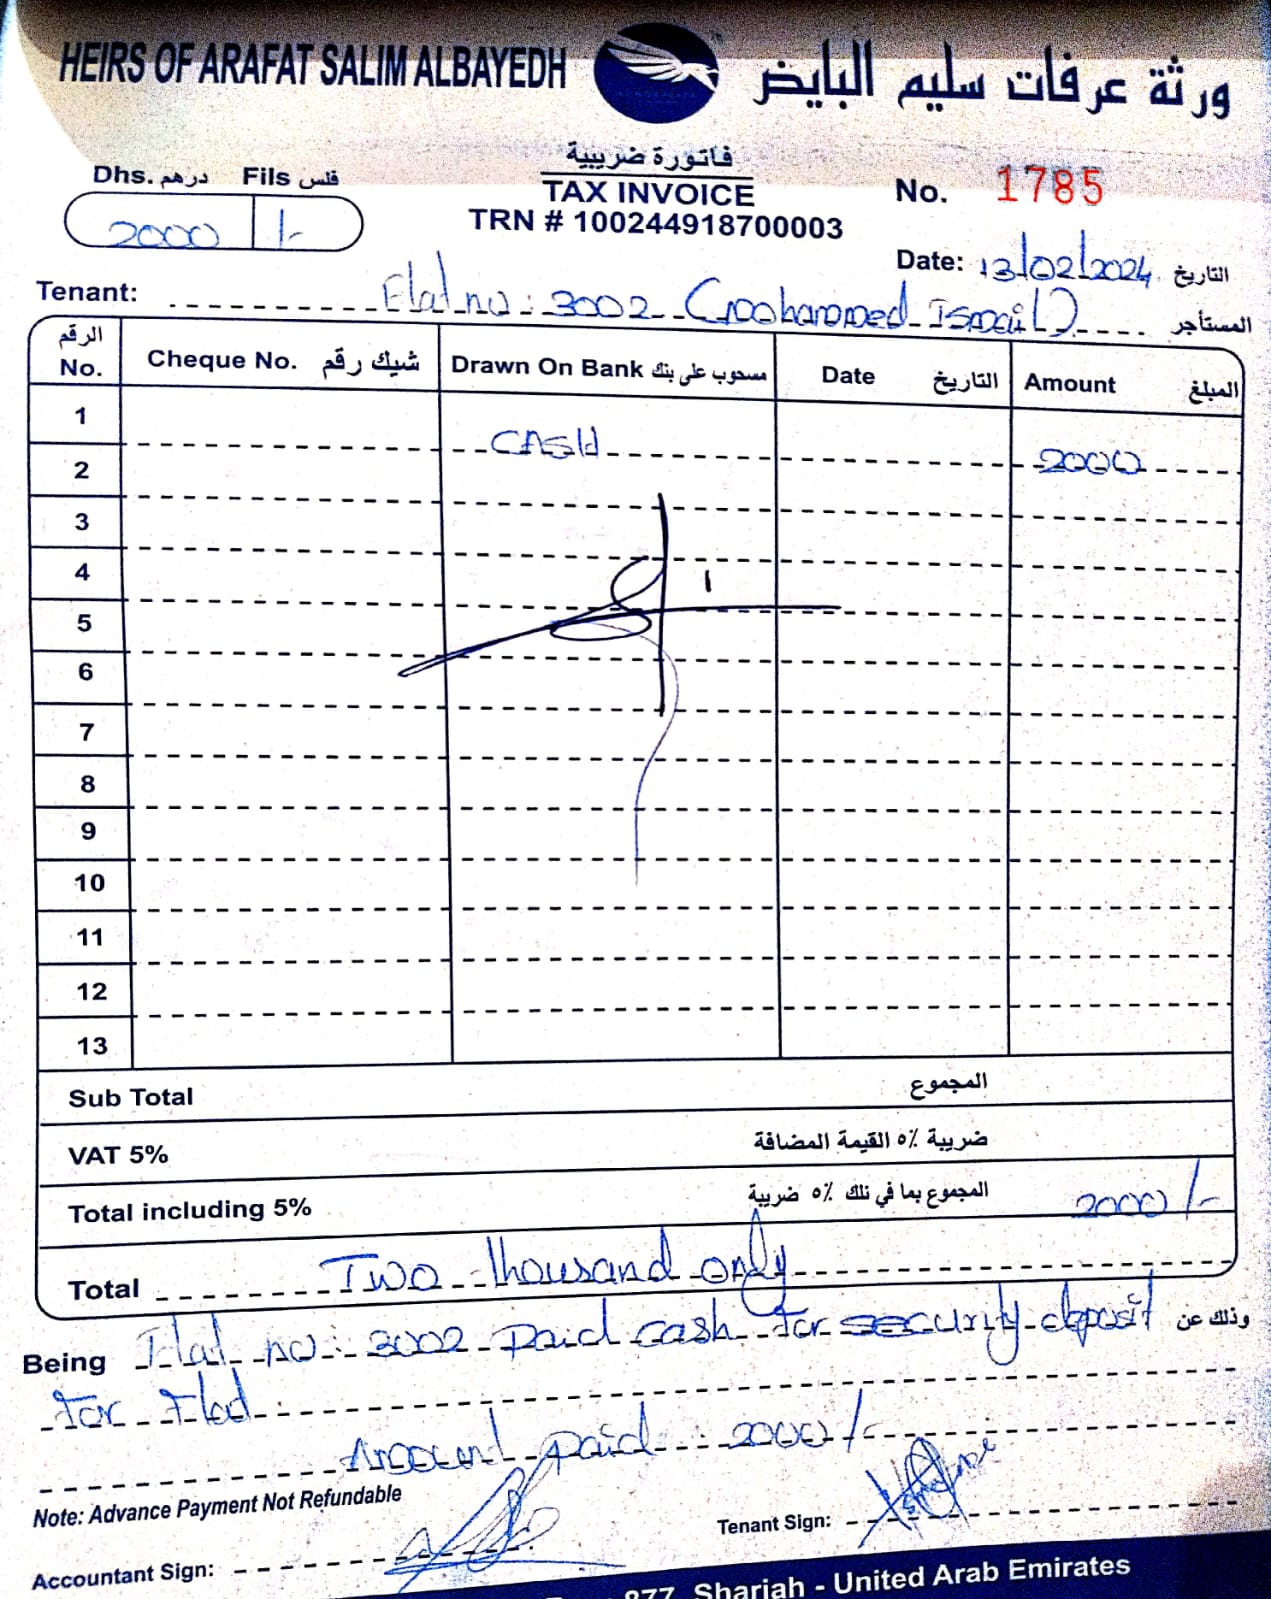 HEIRS OF ARAFAT SALIM ALBAYEDH ورثة عرفات سليم البايض
فاتورة ضريبية
Dhs. درهم Fils فلس TAX INVOICE No. 1785
2000 /- TRN # 100244918700003
Date: 13/02/2024 التاريخ
Tenant: Flat no: 3002 (Mohammed Ismail) المستأجر
الرقم No. Cheque No. شيك رقم Drawn On Bank مسحوب على بنك Date التاريخ Amount المبلغ
1 CASH 2000
2
3
4
5
6
7
8
9
10
11
12
13
Sub Total المجموع
VAT 5% ضريبة ٥٪ القيمة المضافة
Total including 5% المجموع بما في ذلك ٥٪ ضريبة 2000/-
Total Two thousand only
Being Flat no: 3002 paid cash for security deposit وذلك عن
for Flat:
Amount paid: 2000/-
Note: Advance Payment Not Refundable
Tenant Sign:
Accountant Sign:
877, Sharjah - United Arab Emirates